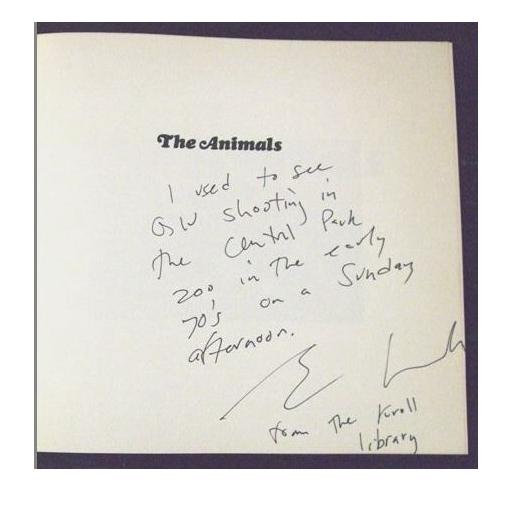 The Animals
I used to see
GW shooting in
the Central Park
zoo in the early
70's on a Sunday
afternoon.
from the Kroll
library